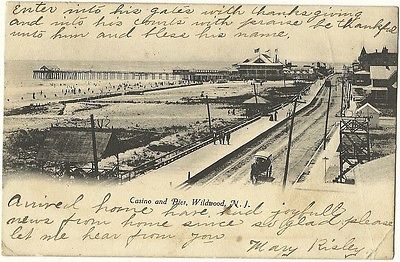 Enter into his gates with thanksgiving
and into his courts with praise be thankful
unto him and bless his name.
Casino and Pier, Wildwood, N. J.
Arrived home have had joyfull
news from home since so glad, please
let me hear from you
Mary Risley